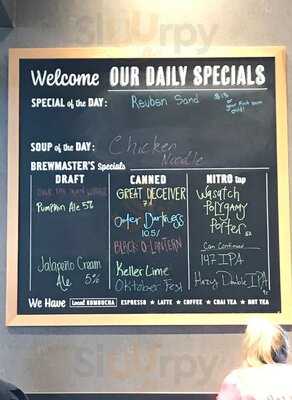 Sluurpy
Welcome OUR DAILY SPECIALS
SPECIAL of the DAY: Reuben Sand $13
or
your first born
child!
SOUP of the DAY: Chicken
Noodle
BREWMASTER'S Specials
DRAFT
Pumpkin Ale 5%
Jalapeño Cream
Ale 5%
CANNED
GREAT DECEIVER
Outer Darkness
10.5%
BLACK-O-LANTERN
Keller Lime
Oktober Fest
NITRO tap
Wasatch
Polygamy
Porter
Can Continued
147 IPA
Hazy Double IPA
We Have Local KOMBUCHA ESPRESSO ★ LATTE ★ COFFEE ★ CHAI TEA ★ HOT TEA
Sluurpy